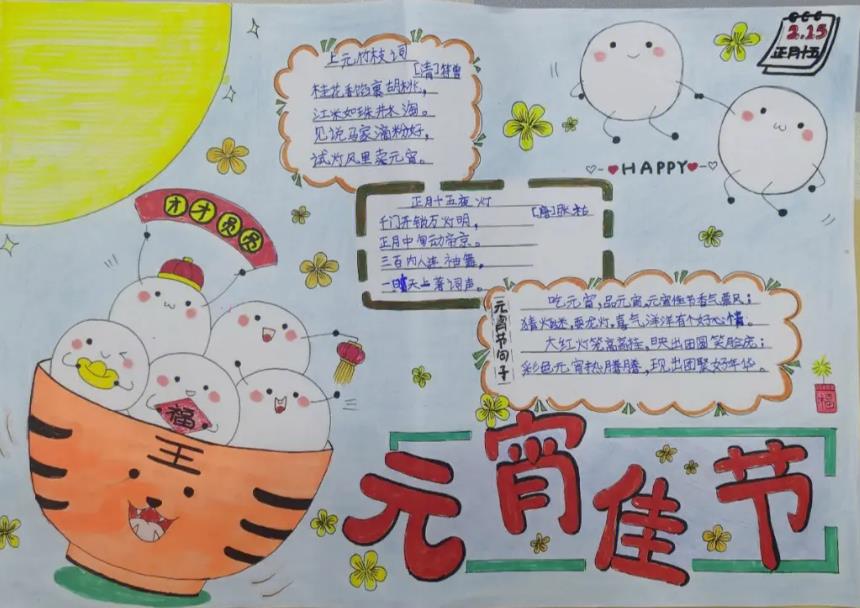 2.15
正月十五
上元竹枝词
[清]符曾
桂花香馅裹胡桃，
江米如珠井水淘。
见说马家滴粉好，
试灯风里卖元宵。
HAPPY
正月十五夜灯
[唐]张祜
千门开锁万灯明，
正月中旬动帝京。
三百内人连袖舞，
一时天上著词声。
团团圆圆
元宵节句子
吃元宵，品元宵，元宵佳节香气
猜灯谜，耍龙灯，喜气洋洋有个好心情。
大红灯笼高高挂，映出团圆笑脸庞；
彩色元宵热腾腾，现出团聚好年华。
福
福
王
元宵佳节